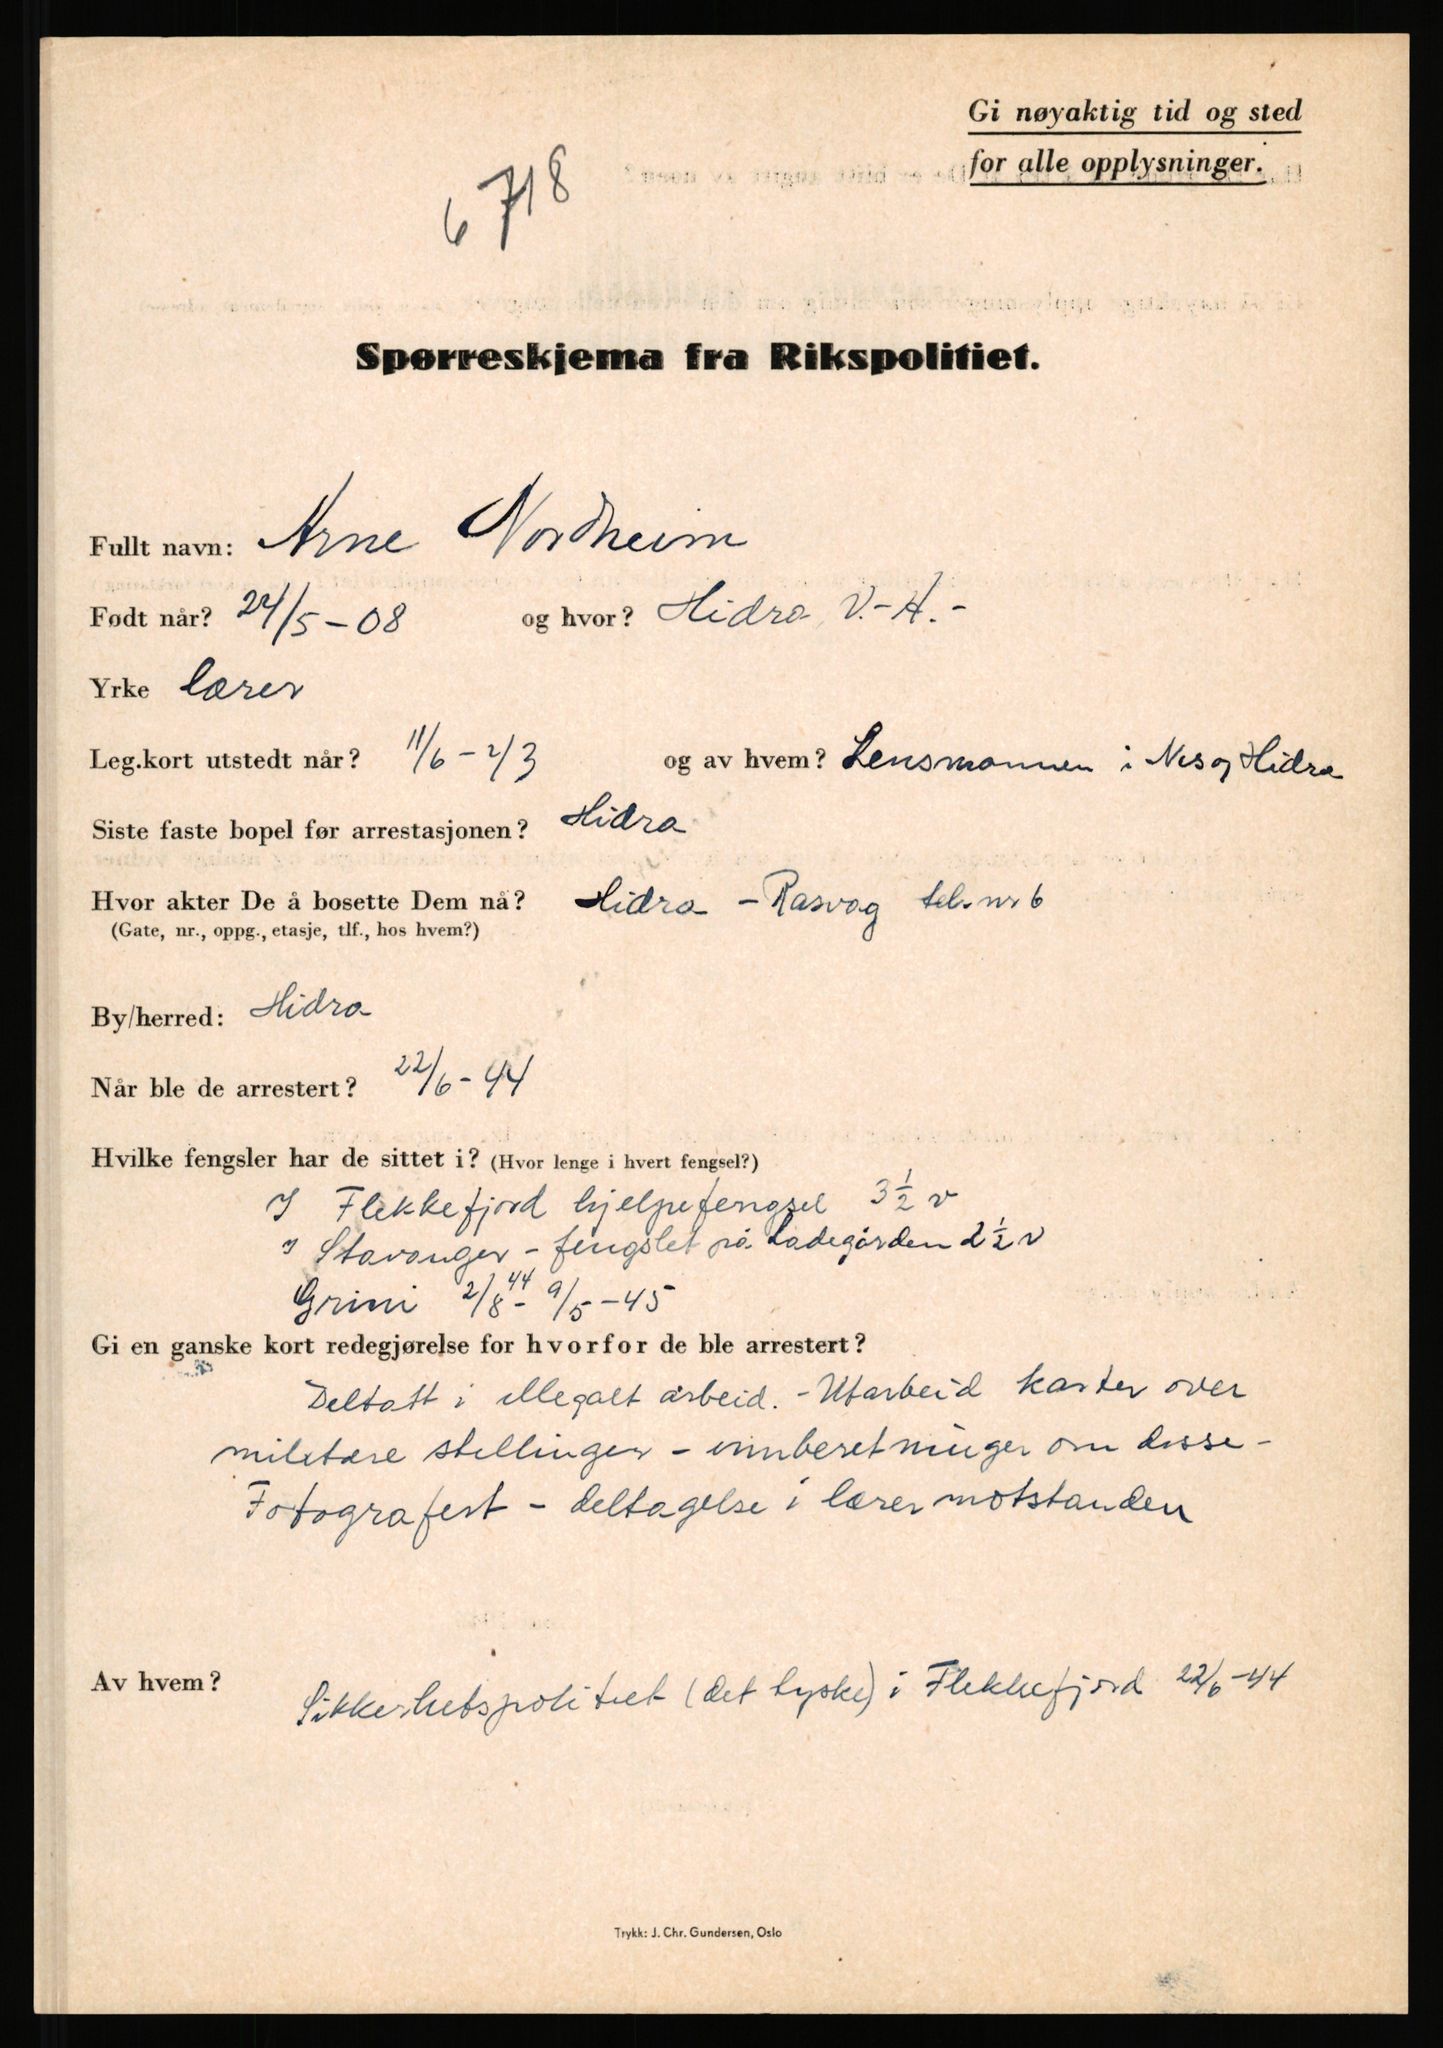 Gi nøyaktig tid og sted
for alle opplysninger.
6718
Spørreskjema fra Rikspolitiet.
Fullt navn: Arne Nordheim
Født når? 24/5-08 og hvor? Hidra V.-A.-
Yrke lærer
Leg.kort utstedt når? 11/6-43 og av hvem? Lensmannen i Nes og Hidra
Siste faste bopel før arrestasjonen? Hidra
Hvor akter De å bosette Dem nå? Hidra - Rasvåg tel. nr 6
(Gate, nr., oppg., etasje, tlf., hos hvem?)
By/herred: Hidra
Når ble de arrestert? 22/6-44
Hvilke fengsler har de sittet i? (Hvor lenge i hvert fengsel?)
I Flekkefjord hjelpefengsel 3 1/2 v
I Stavanger - fengslet på Ladegården 2 1/2 v
Grini 2/8 44 - 9/5-45
Gi en ganske kort redegjørelse for hvorfor de ble arrestert?
Deltatt i illegalt arbeid. - Utarbeid karter over
militære stillinger - innberetninger om disse -
Fotografert - deltagelse i lærermotstanden
Av hvem?
Sikkerhetspolitiet (det tyske) i Flekkefjord 22/6-44
Trykk: J. Chr. Gundersen, Oslo